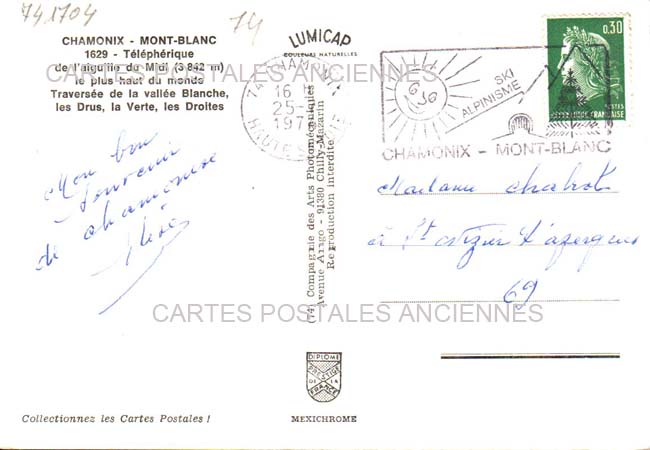 741704
74
CHAMONIX - MONT-BLANC
1629 - Téléphérique
de l'aiguille du Midi (3 842 m)
le plus haut du monde
Traversée de la vallée Blanche,
les Drus, la Verte, les Droites
LUMICAP
COULEURS NATURELLES
74 CHAMONIX
16 H
25-
197
HAUTE S
SKI
ALPINISME
CHAMONIX - MONT-BLANC
0,30
POSTES
REPUBLIQUE FRANCAISE
CARTES POSTALES ANCIENNES
Mon bon
souvenir
de chamonix
(74) Compagnie des Arts Photomécaniques
Avenue Arago - 91380 Chilly-Mazarin
Reproduction interdite
Madame Chabot
à St Vizier d'azergues
69
CARTES POSTALES ANCIENNES
DIPLOME
PRESTIGE
DE LA
FRANCE
Collectionnez les Cartes Postales !
MEXICHROME